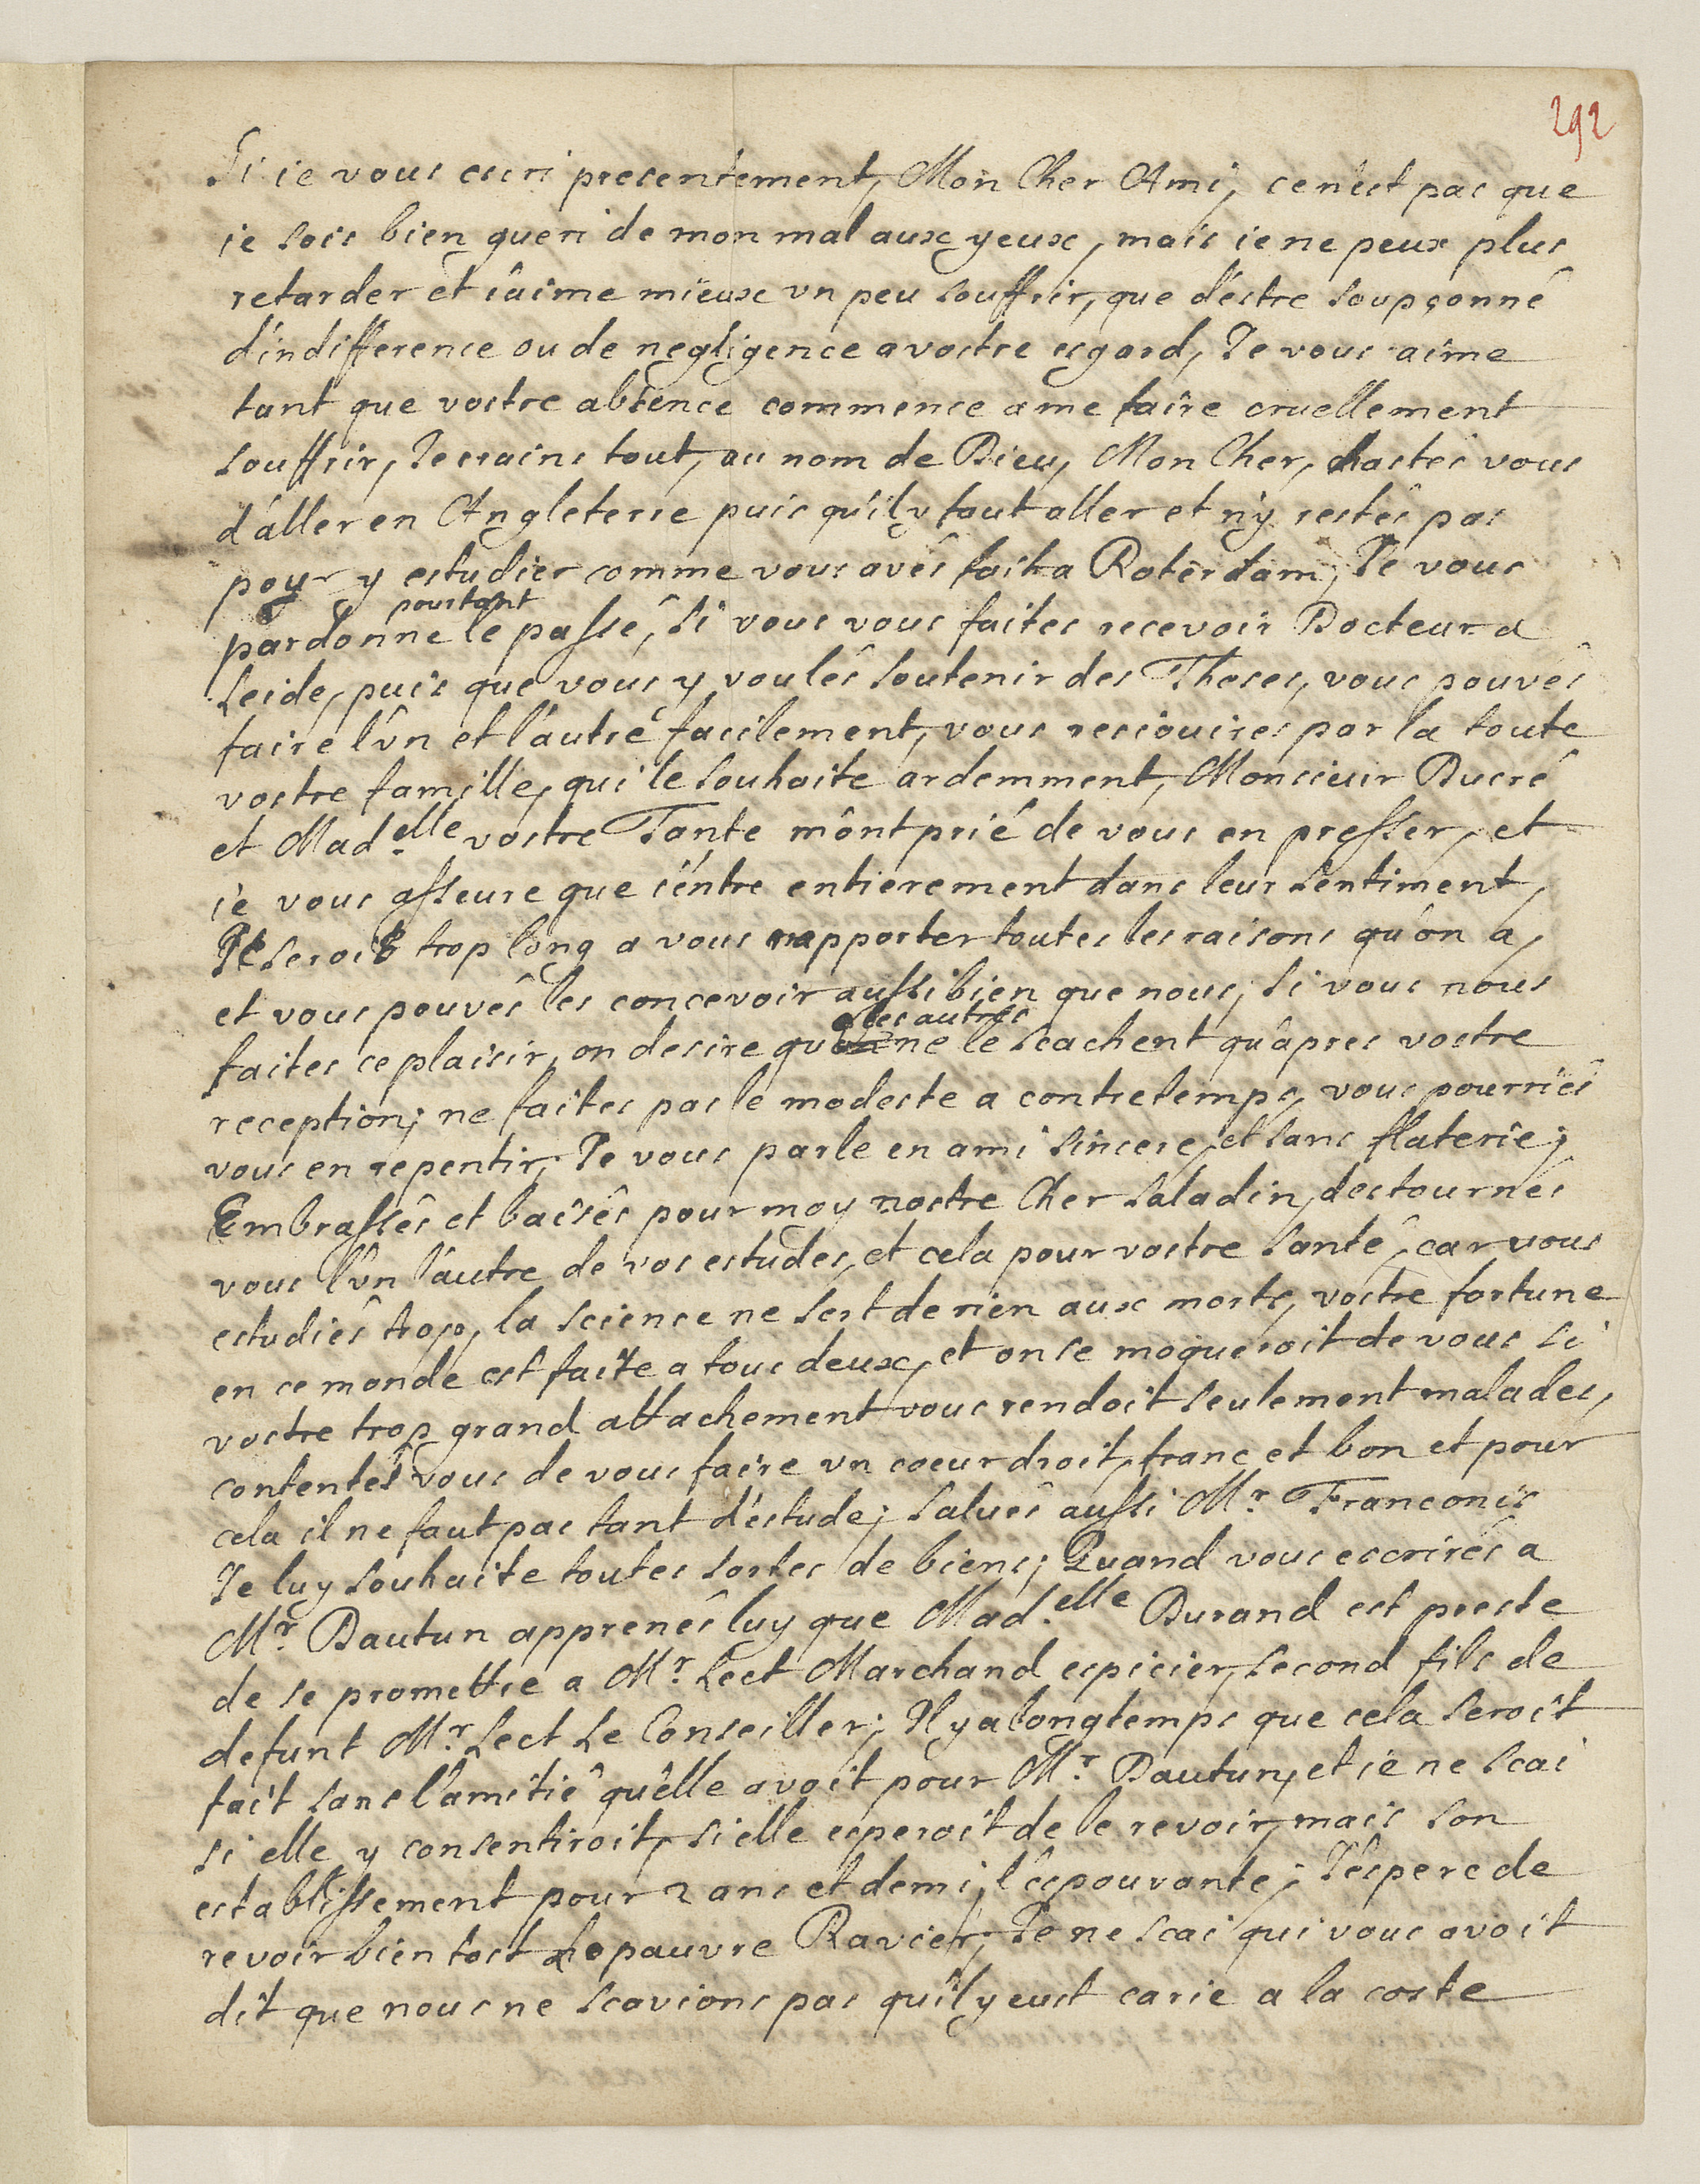 292
Si ie vous escri presentement, Mon Cher Ami, ce n'est pas que
ie sois bien gueri de mon mal aux yeux, mais ie ne peux plus
retarder et i'aime mieux vn peu souffrir, que d'estre soupçonné
d'indifference ou de negligence a vostre esgard, Ie vous aime
tant que vostre absence commence a me faire cruellement
souffrir, Ie crains tout, au nom de Dieu, Mon Cher, hastés vous
d'aller en Angleterre puis qu'il y faut aller et n'y restés pas
pour y estudier comme vous avés fait a Roterdam, Ie vous
pourtant
pardonne le passé, si vous vous faites recevoir Docteur a
Leide, puis que vous y voulés soutenir des Theses, vous pouvés
faire l'vn et l'autre facilement, vous resiouires par la toute
vostre famille, qui le souhaite ardemment, Monsieur Ducré
et Mad.elle vostre Tante m'ont prié de vous en presser, et
ie vous asseure que i'entre entierement dans leur sentiment,
Il seroit trop long a vous rapporter toutes les raisons qu'on a,
et vous pouvés les concevoir aussi bien que nous, si vous nous
les autres
faites ce plaisir, on desire que ne le scachent qu'apres vostre
reception; ne faites pas le modeste a contretemps, vous pourriés
vous en repentir, Ie vous parle en ami sincere, et sans flaterie;
Embrassés et baisés pour moy nostre Cher Saladin, destournés
vous l'vn l'autre de vos estudes, et cela pour vostre santé, car vous
estudiés trop, la science ne sert de rien aux morts, vostre fortune
en ce monde est faite a tous deux, et on se moqueroit de vous si
vostre trop grand attachement vous rendoit seulement malades,
contentés vous de vous faire vn coeur droit, franc et bon et pour
cela il ne faut pas tant d'estude; salués aussi Mr. Franconis
Ie luy souhaite toutes sortes de biens; Quand vous escrirés a
Mr. Dautun apprenés luy que Mad.elle Durand est preste
de se promettre a Mr. Lect Marchand espicier, second fils de
defunt Mr. Lect Le Conseiller; Il y a longtemps que cela seroit
fait sans l'amitié qu'elle avoit pour Mr. Dautun, et ie ne scai
si elle y consentiroit, si elle esperoit de le revoir, mais son
establissement pour 2 ans et demi, l'espouvante; I'espere de
revoir bien tost le pauvre Ravier, Ie ne scai qui vous avoit
dit que nous ne scavions pas qu'il y eust carie a la coste